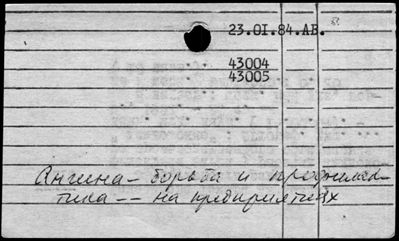 23.01.84.АВ.
43004
43005
Ангина – борьба и профилак-
тика –– на предприятиях